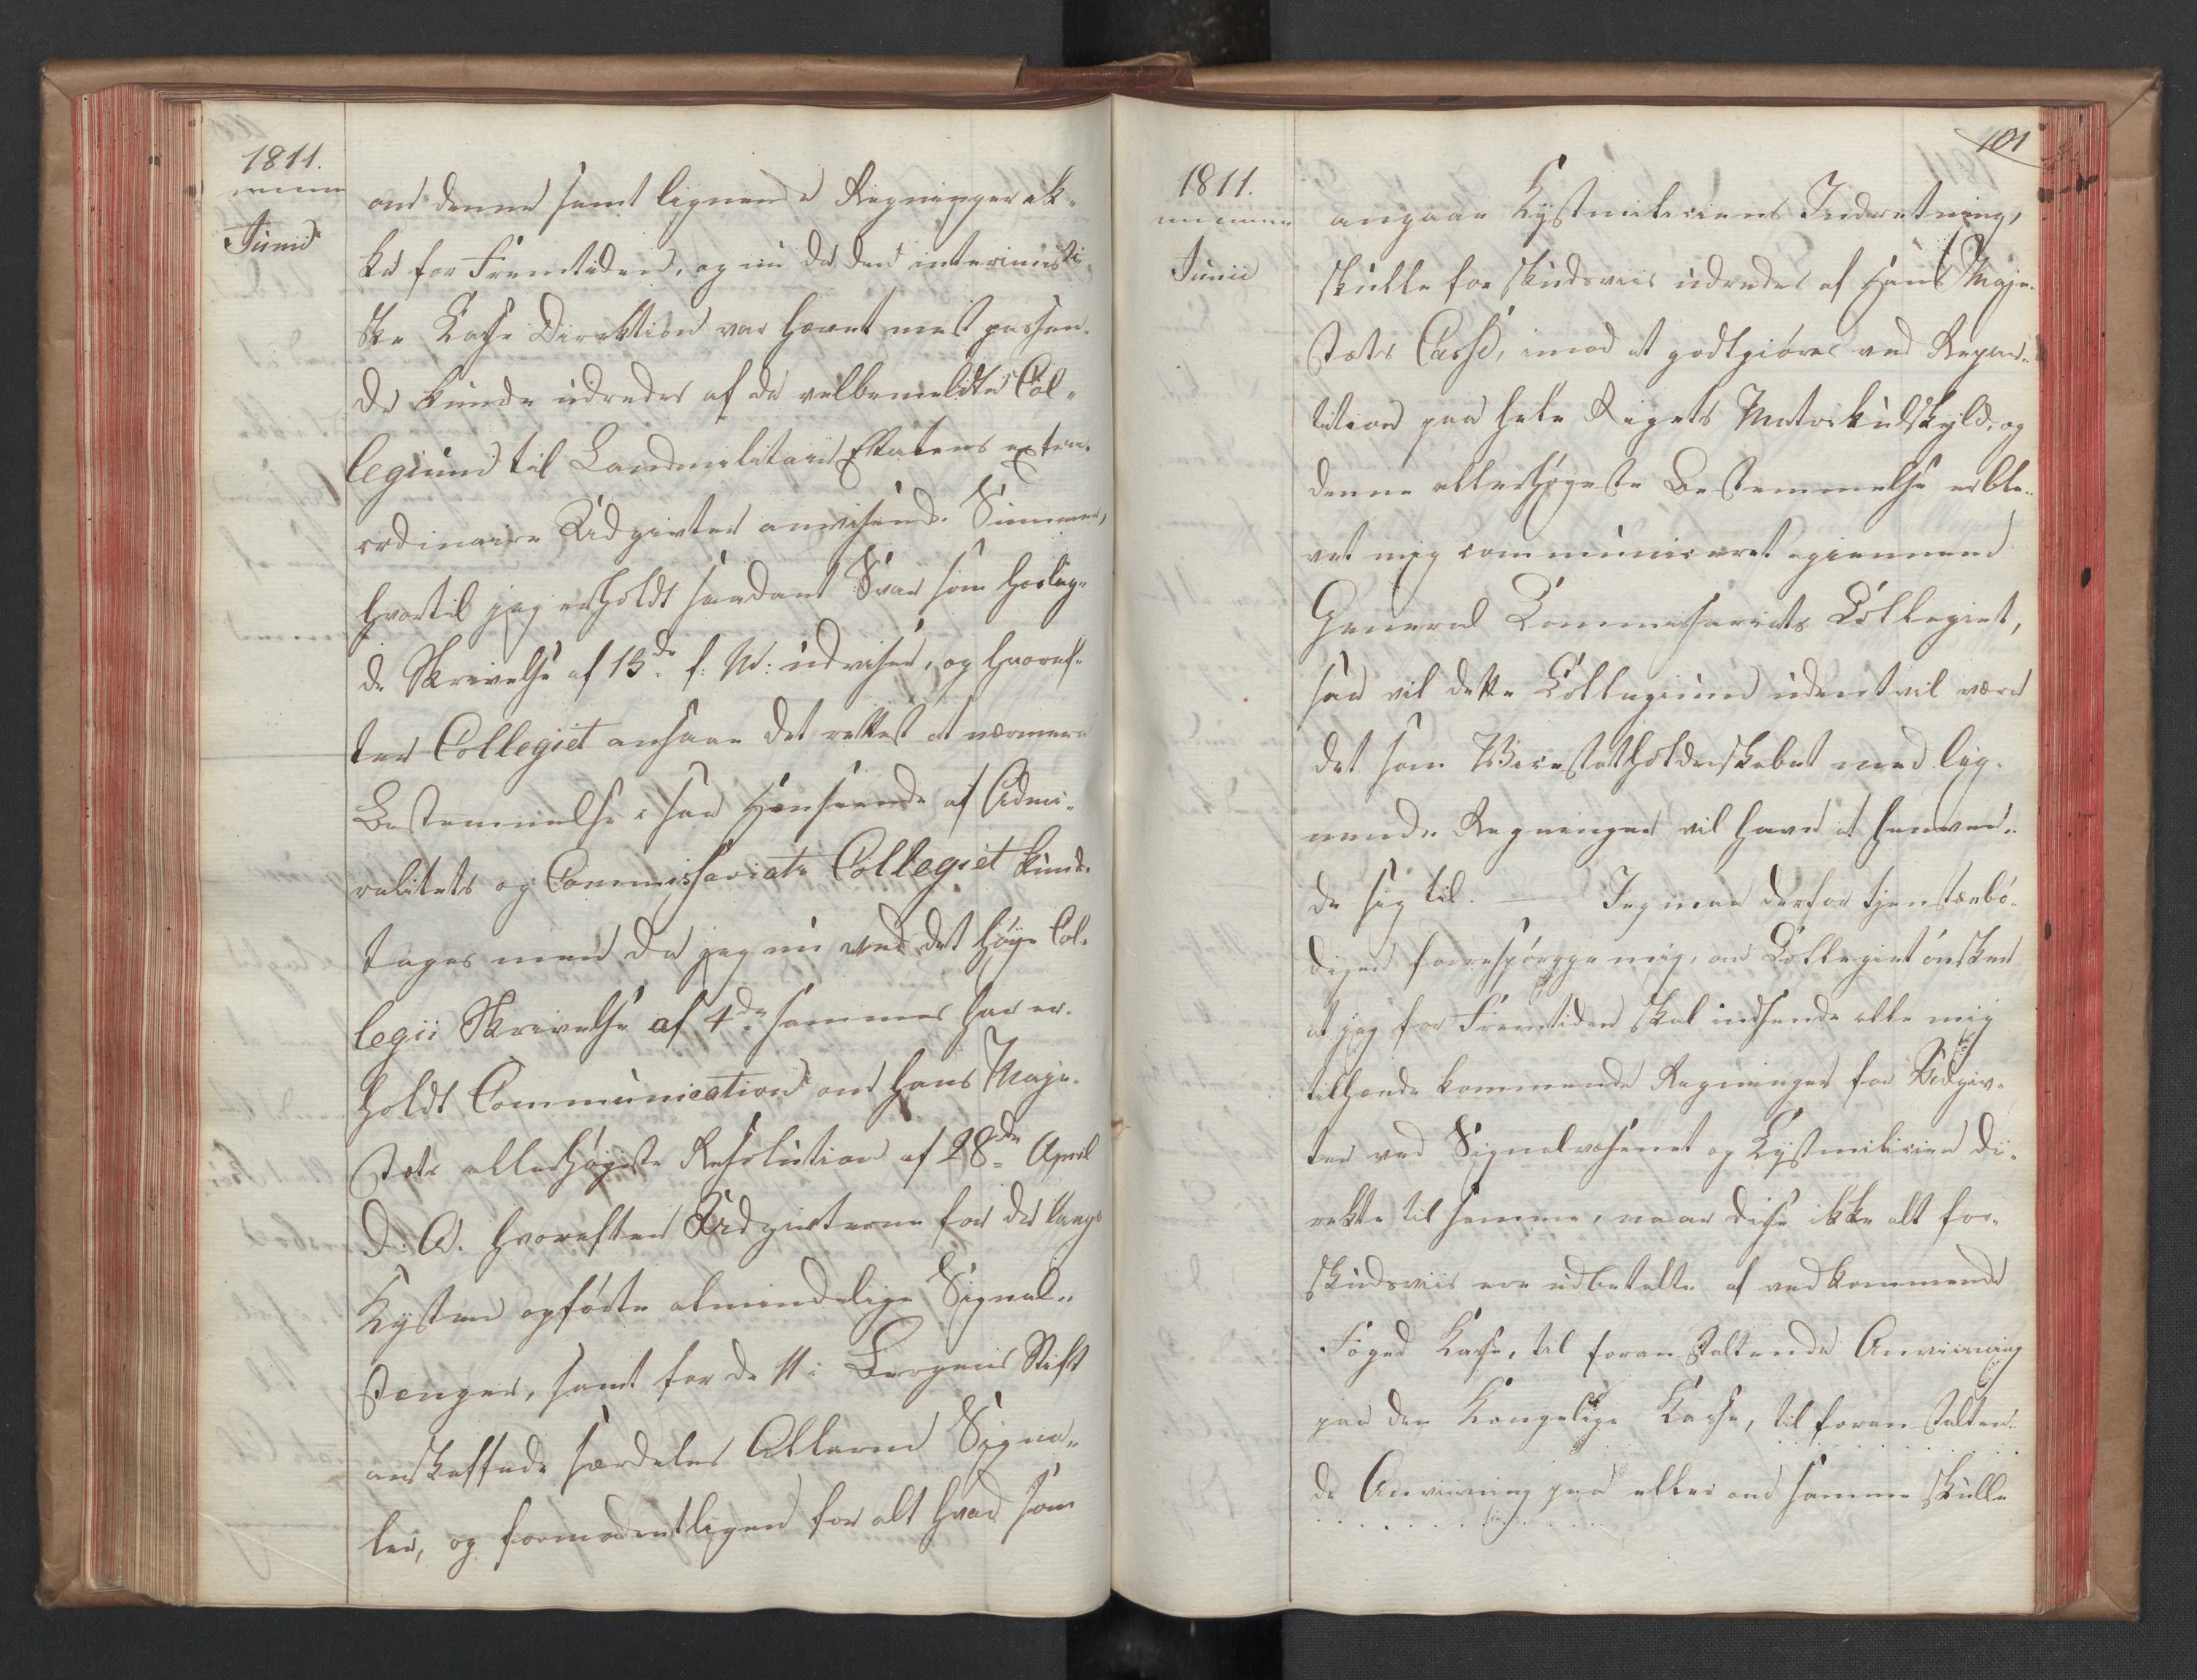 1811.
Junii
om denne samt lignende Regninger ik-
ke for Fremtiden, og nu da den interimisti-
ske Casse Direktion var hævet mest passen-
de kunde udredes af de velbemeldte Col-
legium til Landmilitair Etatens extra-
ordinaire Udgivter anvisende Summer,
hvortil jeg erholdt saadant Svar som hoslig-
de Skrivelse af 13de f: M: udviser, og hvoref-
ter Collegiet ansaae det rettest at nærmere
Bestemmelse i saa Henseende af Admi-
ralitets og Commissariats Collegiet kunde
tages men da jeg nu ved det høye Col-
legii Skrivelse af 4de sammes har er-
holdt Communication om Hans Maje-
stæts allerhøjeste Resolution af 28de April
d: A. hvorefter Udgivterne for de langs
Kysten opførte almindelige Signal-
stænger, samt for de 11 i Bergens Stift
anskaffede særdeles Allarm Signa-
ler, og formodentligen for alt hvad som
101
1811.
Junii
angaae Kystmiliciens Indretning,
skulle forskudsviis udredes af Hans Maje-
stæts Casse, imod at godtgiøres ved Repar-
tition paa hele Rigets Matrikulskyld, og
denne allerhøyeste Bestemmelse er ble-
vet mig communiceret igiennem
General Commissariats Collegiet,
saa vil dette Collegium udentvil være
det som Vicestatholderskabet med lig-
nende Regninger vil have at henven-
de sig til. — Jeg maa derfor tjenstærbø-
digen forespørgge mig, om Collegiet ønsker
at jeg for Fremtiden skal indsende alle mig
tilhænde kommende Regninger for Udgiv-
ter ved Signalvæsenet og Kystmilicien di-
rekte til samme, naar disse ikke alt for-
skudsviis ere udbetalte af vedkommende
Foged Casse, til foranstaltende Anviisning
paa den Kongelige Kasse, til foranstalten-
de Anviisning paa eller om samme skulle